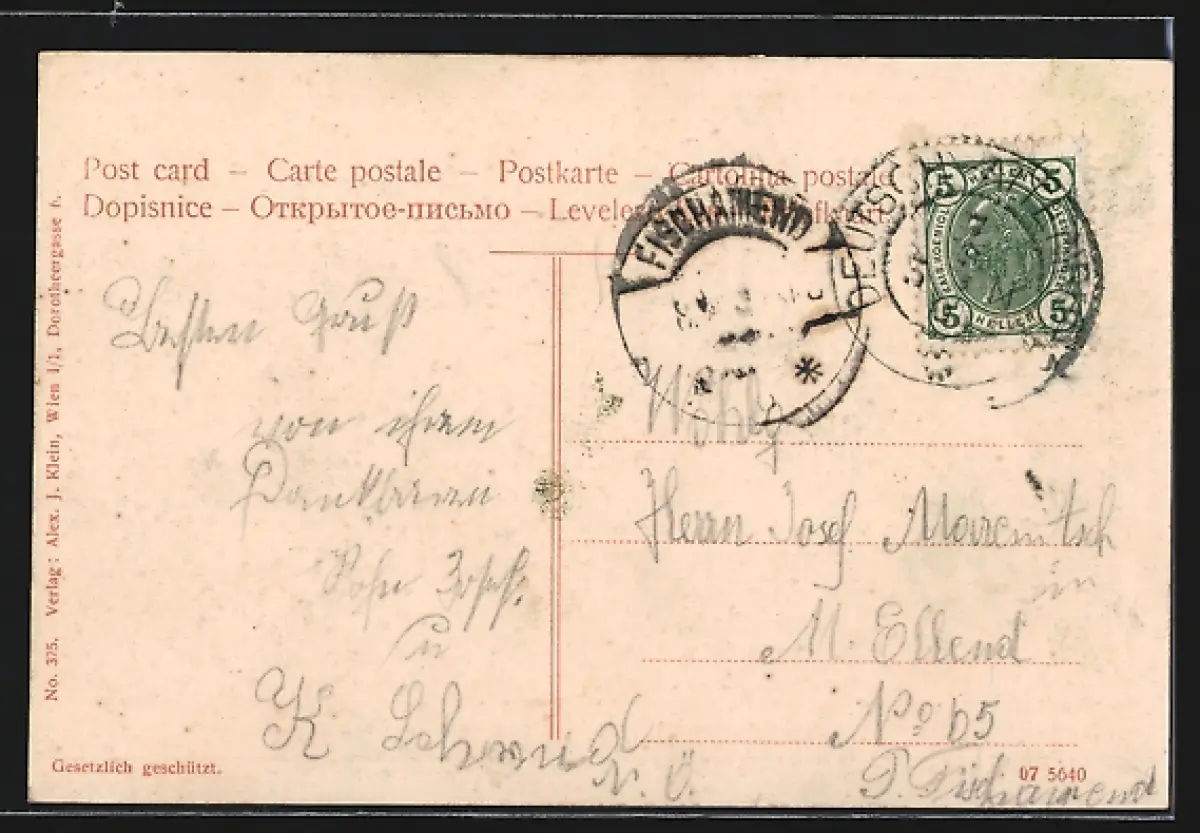 Post card – Carte postale – Postkarte – Cartolina postale
Dopisnice – Открытое-письмо – Levele
No. 375. Verlag: Alex. J. Klein, Wien I/1, Dorotheergasse 6.
FISCHAMEND
DEUTSCH
5 HELLER 5
5 HELLER 5
Besten Gruß
von ihrem
Dankbaren
Sohn Josef.
u
K. Schmid
Wohlg
Herrn Josef Maremitsch
in
M. Ellend
No 65
P. Fischamend
N. Ö.
Gesetzlich geschützt.
07 5640